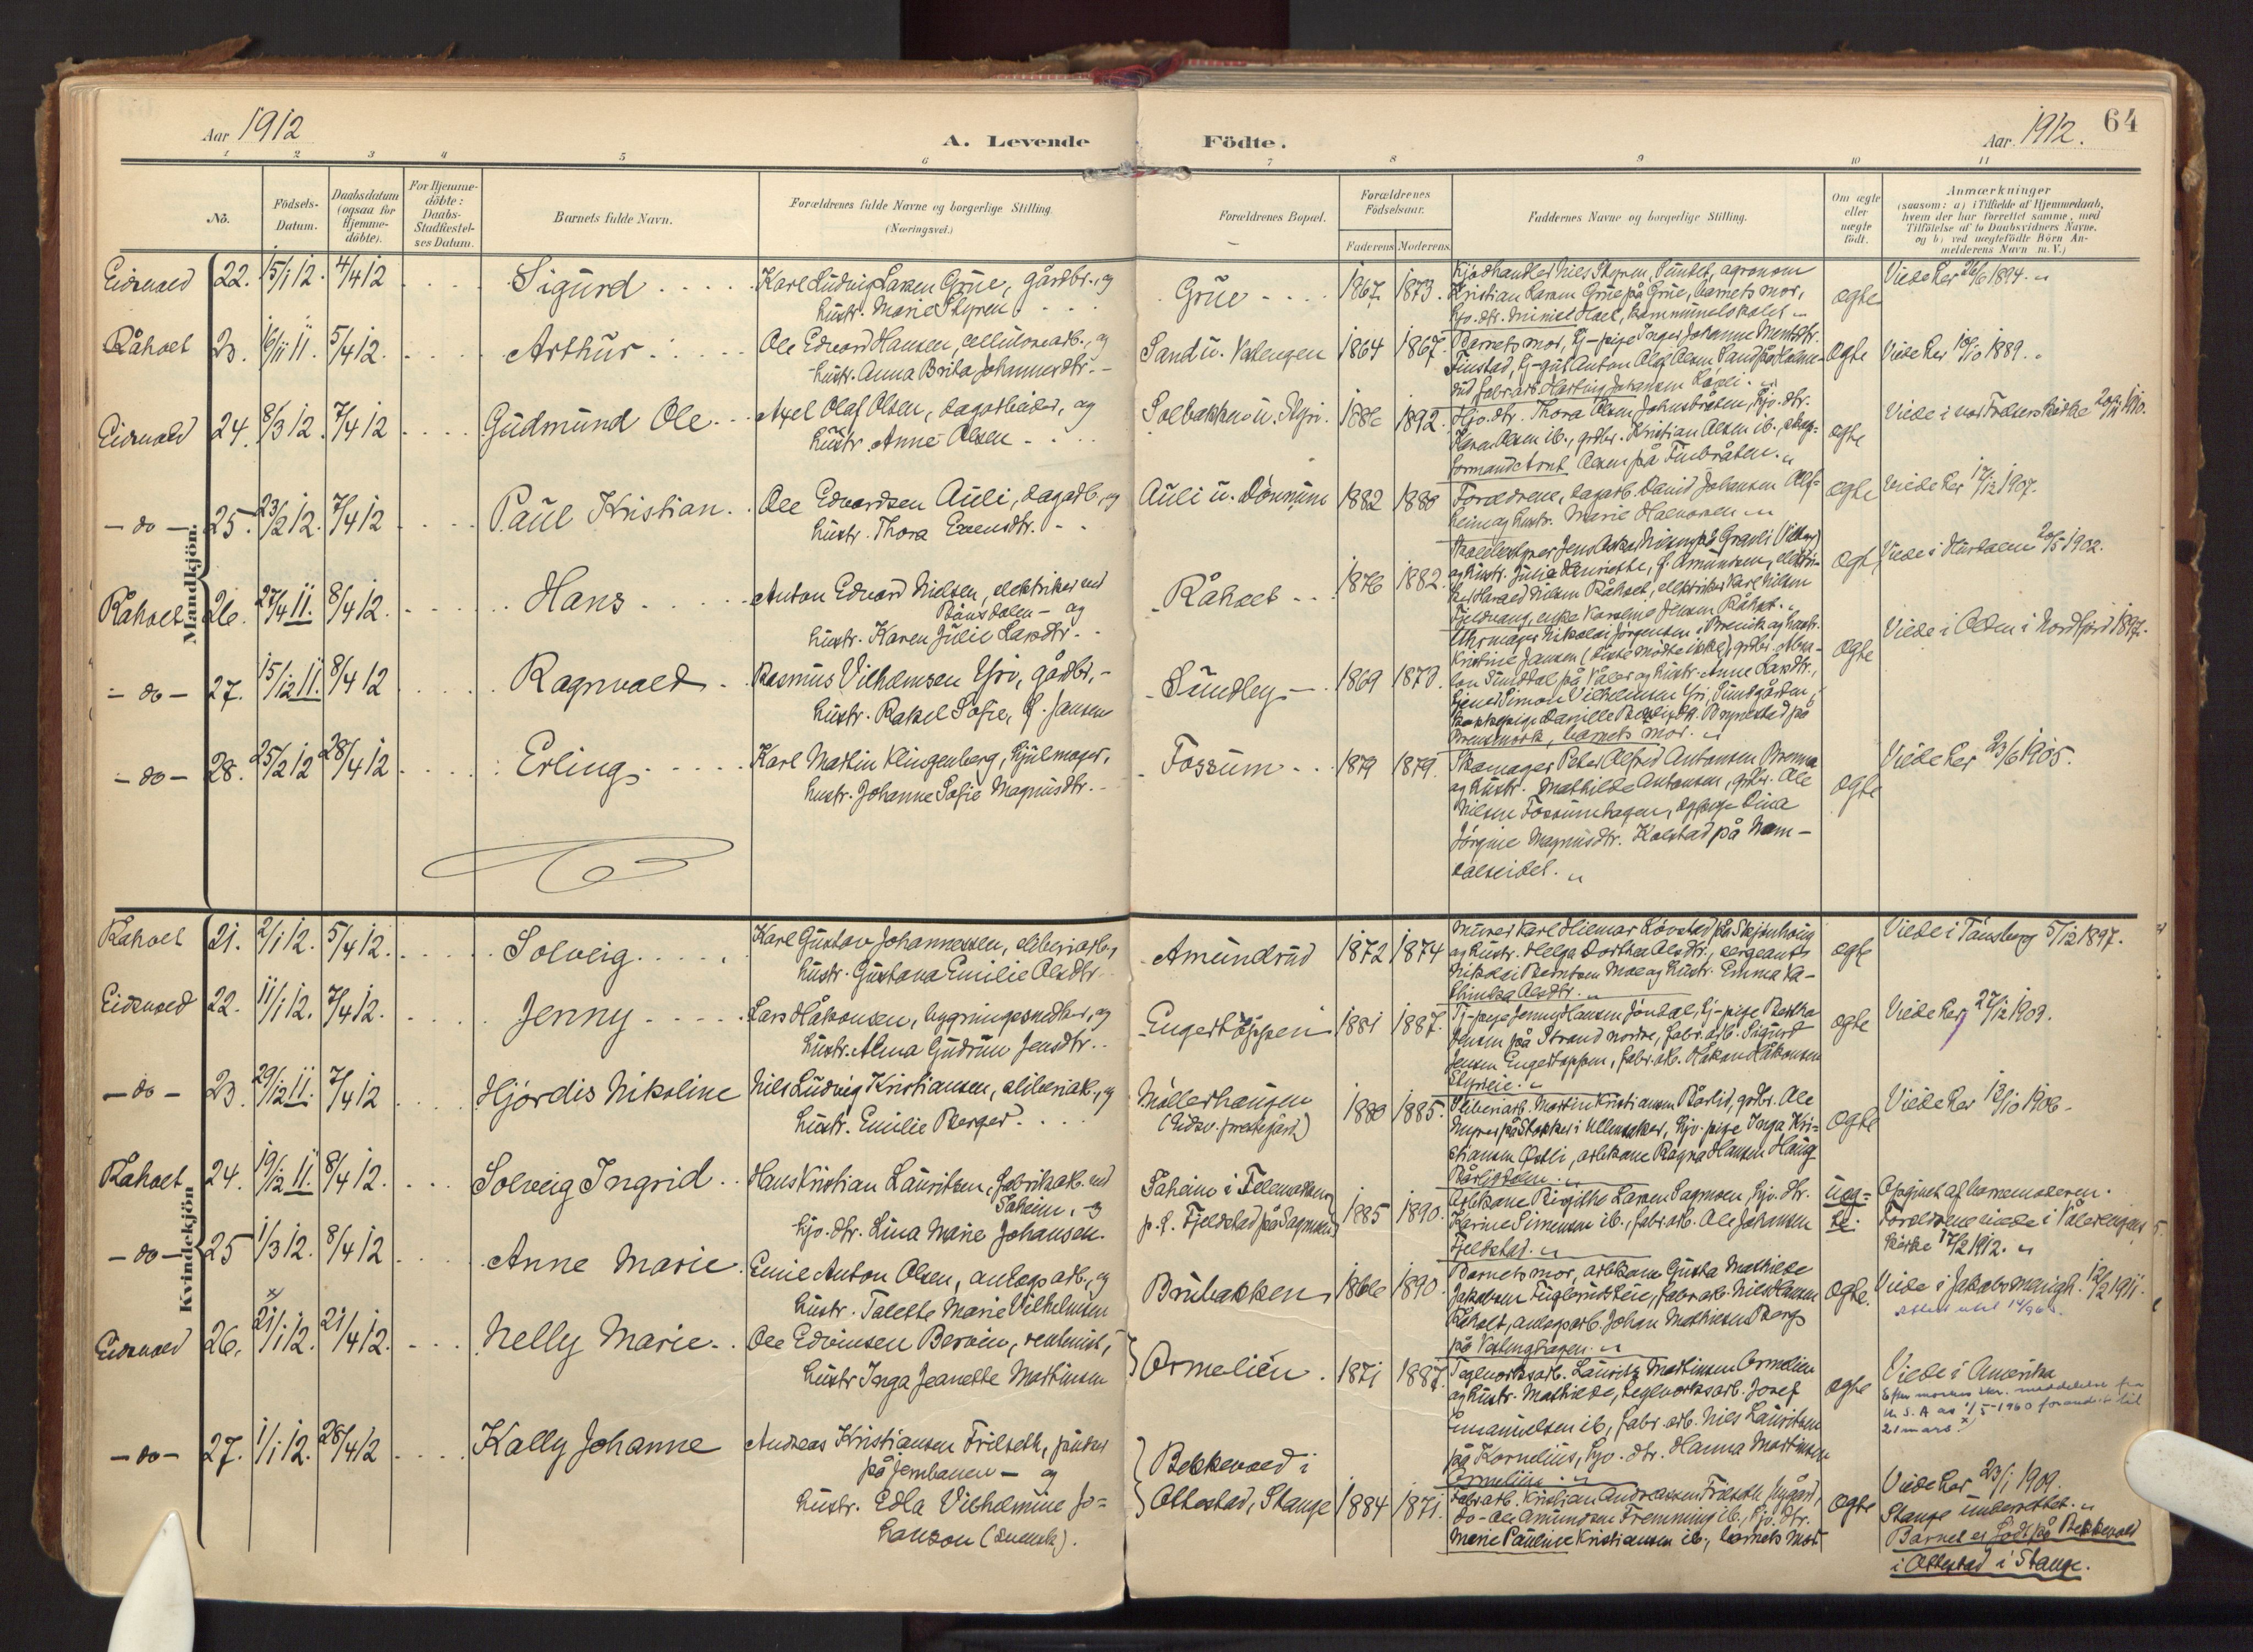 Aar 1912
A. Levende
Födte.
Aar 1912.
64
1 2 3 4 5 6 7 8 9 10 11
No.
Födsels-
Datum.
Daabsdatum
(ogsaa for
Hjemme-
döbte).
For Hjemme-
döbte:
Daabs-
Stadfæstel-
ses Datum.
Barnets fulde Navn.
Forældrenes fulde Navne og borgerlige Stilling.
(Næringsvei.)
Forældrenes Bopæl.
Forældrenes
Födselsaar.
Faderens Moderens
Faddernes Navne og borgerlige Stilling.
Om ægte
eller
uægte
födt.
Anmærkninger
(saasom: a) i Tilfælde af Hjemmedaab,
hvem der har forrettet samme, med
Tilföielse af to Daabsvidners Navne.
og b) ved uægtefödte Börn An-
melderens Navn m. V.)
Mandkjön.
Eidsvold 22. 15/1 12. 4/4 12 Sigurd
Karl Ludvig Larsen Grue, gårdbr., og
hustr. Marie Styren.
Grue 1867. 1873.
Kjödhandler Nils Styren, Sundet, agronom
Kristian Larsen Grue på Grue, barnets mor,
ægte
Viede her 26/6 1894.
Råholt 23. 16/11 11. 5/4 12. Arthur
Ole Edvard Hansen, cellulosearb., og
hustr. Anna Brita Johannesdtr.
Sand u. Valengen 1864 1867.
Barnets mor, tj-pige Inger Johanne
Finstad, tj-gut Anton Olaf Olsen
ægte
Viede her 10/10 1889.
Eidsvold 24. 8/3 12. 7/4 12 Gudmund Ole
Axel Olaf Olsen, dagarbeider, og
hustr. Anne Olsen
Solbakken u. Styri. 1886 1892.
Hjv. dtr. Thora Olsen Johnsbråten, hjv. dtr.
Karen Olsen ib., grdbr. Kristian Olsen ib., skog-
formand Arnt Olsen på Finbråten.
ægte
Viede i vor Frelsers kirke 20/11 1910.
- do - 25. 23/2 12. 7/4 12 Paul Kristian.
Ole Edvardsen Auli, dagarb., og
hustr. Thora Evensdtr.
Auli u. Dönnum 1882 1880
Forældrene, dagarb. David Johansen Alf-
heim og hustr. Marie Halvorsen
ægte
Viede her 17/12 1907.
Råholt 26. 27/4 11. 8/4 12. Hans
Anton Edvard Nielsen, elektriker ved
Bönsdalen - og
hustr. Karen Julie Larsdtr.
Råholt 1876 1882.
og hustr. Julie Henriette, f. Amundsen, elektri-
ker Harald Nielsen Råholt, elektriker Karl Nielsen
Fjeldvang, enke Karoline Jensen Råholt.
ægte
Viede i Hurdalen 20/5 1902.
- do - 27. 15/12 11. 8/4 12 Ragnvald
Rasmus Vilhelmsen Ysri, gårdbr.,
hustr. Rakel Sofie, f. Jansen
Sundby 1869 1870.
Uhrmager Nikolai Jörgensen i Brevik og hustr.
Kristine Jansen (sidste mödte ikke), grdbr. Absa-
lon Sunddal på Våler og hustr. Anne Larsdtr.,
barnets mor.
ægte
Viede i Olden i Nordfjord 1897.
- do - 28. 25/2 12 28/4 12 Erling
Karl Martin Klingenberg, hjulmager,
hustr. Johanne Sofie Magnusdtr.
Fossum 1879 1879.
Skomager Peter Alfred Antonsen Brenna
og hustr. Mathilde Antonsen, grdbr. Ole
Nilsen Fossumhagen, tj-pige Dina
Jörgine Magnusdtr. Kolstad på Nam-
dalseidet.
ægte
Viede her 23/6 1905.
Kvindekjön
Råholt 21. 2/1 12. 5/4 12. Solveig
Karl Gustav Johannessen, sliberiarb.,
hustr. Gustava Emilie Olsdtr.
Amundrud 1872 1874
Murer Karl Hilmar Lövstad på Skjönhaug
og hustr. Helga Dorthea Olsdtr., sergeant
Nikolai Berntsen Moe og hustr. Emma Ka-
thinka Olsdtr.
ægte
Viede i Tönsberg 5/12 1897.
Eidsvold 22. 11/1 12. 7/4 12. Jenny
Lars Håkonsen, bygningssnedker, og
hustr. Alma Gudrun Jensdtr.
Engertoppen 1881 1887.
Tj-pige Jenny Hansen Jöndal, tj-pige Bertha
Jensen på Strand nordre, fabr. arb. Sigurd
Jensen Engertoppen, fabr. arb. Håkon Håkonsen
ægte
Viede her 27/12 1909.
- do - 23 29/12 11. 7/4 12 Hjördis Nikoline
Nils Ludvig Kristiansen, sliberiarb., og
hustr. Emilie Berger.
Möllerhaugen
(Eidsv. prestegård)
1880 1885.
Sliberiarb. Martin Kristiansen Bårlid, grdbr. Ole
Myrer på Stokker i Ullensaker, hjv. pige Inga Kri-
stiansen Östli, arbkone Ragna Hansen Haug
ægte
Viede her 13/10 1906.
Råholt 24. 19/12 11. 8/4 12. Solveig Ingrid
Hans Kristian Lauritsen, fabrikarb. ved
Saheim, og
hjv. dtr. Lina Marie Johansen.
Saheim i Telemarken
p. t. Fjeldstad på Sagmoen 1885 1890.
Arbkone Birgithe Larsen Sagmoen, hjv. dtr.
Karine Simensen ib., fabr. arb. Ole Johansen
Fjeldstad.
uæg-
te.
Opgivet af barnemoderen.
Forældrene viede i Vålerengen
kirke 17/2 1912.
- do - 25 1/3 12. 8/4 12 Anne Marie
Emil Anton Olsen, anlegsarb., og
hustr. Talette Marie Vilhelmsen
Brubakken 1866 1890.
Barnets mor, arbkone Gusta Mathilde
Jakobsen Fuglerudseie, fabr. arb. Nils Hansen
Råholt, anlegsarb. Johan Mathiesen Berg
på Valenghagen.
ægte.
Viede i Jakobs menigh. 12/2 1911.
Eidsvold 26. x 21/1 12. 21/4 12. Nelly Marie
Ole Edvinsen Bervin, rentenist,
hustr. Inga Jeanette Martinsen
Ormelien. 1871 1887.
Teglverksarb. Lauritz Martinsen Ormelien
og hustr. Mathilde, teglverksarb. Josef
Emanuelsen ib., fabr. arb. Nils Lauritsen
på Kornelius, hjv. dtr. Hanna Martinsen
Ormelien.
ægte
Viede i Amerika
Efter mors skr. meddelelse fra
U.S.A. av 1/5-1960 forandret til
21 mars. x)
- do - 27. 1/1 12. 28/4 12 Kally Johanne
Andreas Kristiansen Frilseth, pusser
på jernbanen - og
hustr. Edla Vilhelmine Jo-
hanson (svensk).
Bekkevold i
Ottestad, Stange 1884 1871.
Fabr. arb. Kristian Andreassen Frilseth, Nygård,
do - Ole Amundsen Fremming ib., hjv. dtr.
Marie Pauline Kristiansen ib., barnets mor
ægte
Viede her 23/1 1909.
Stange underrettet.
Barnet er födt på Bekkevold
i Ottestad i Stange.